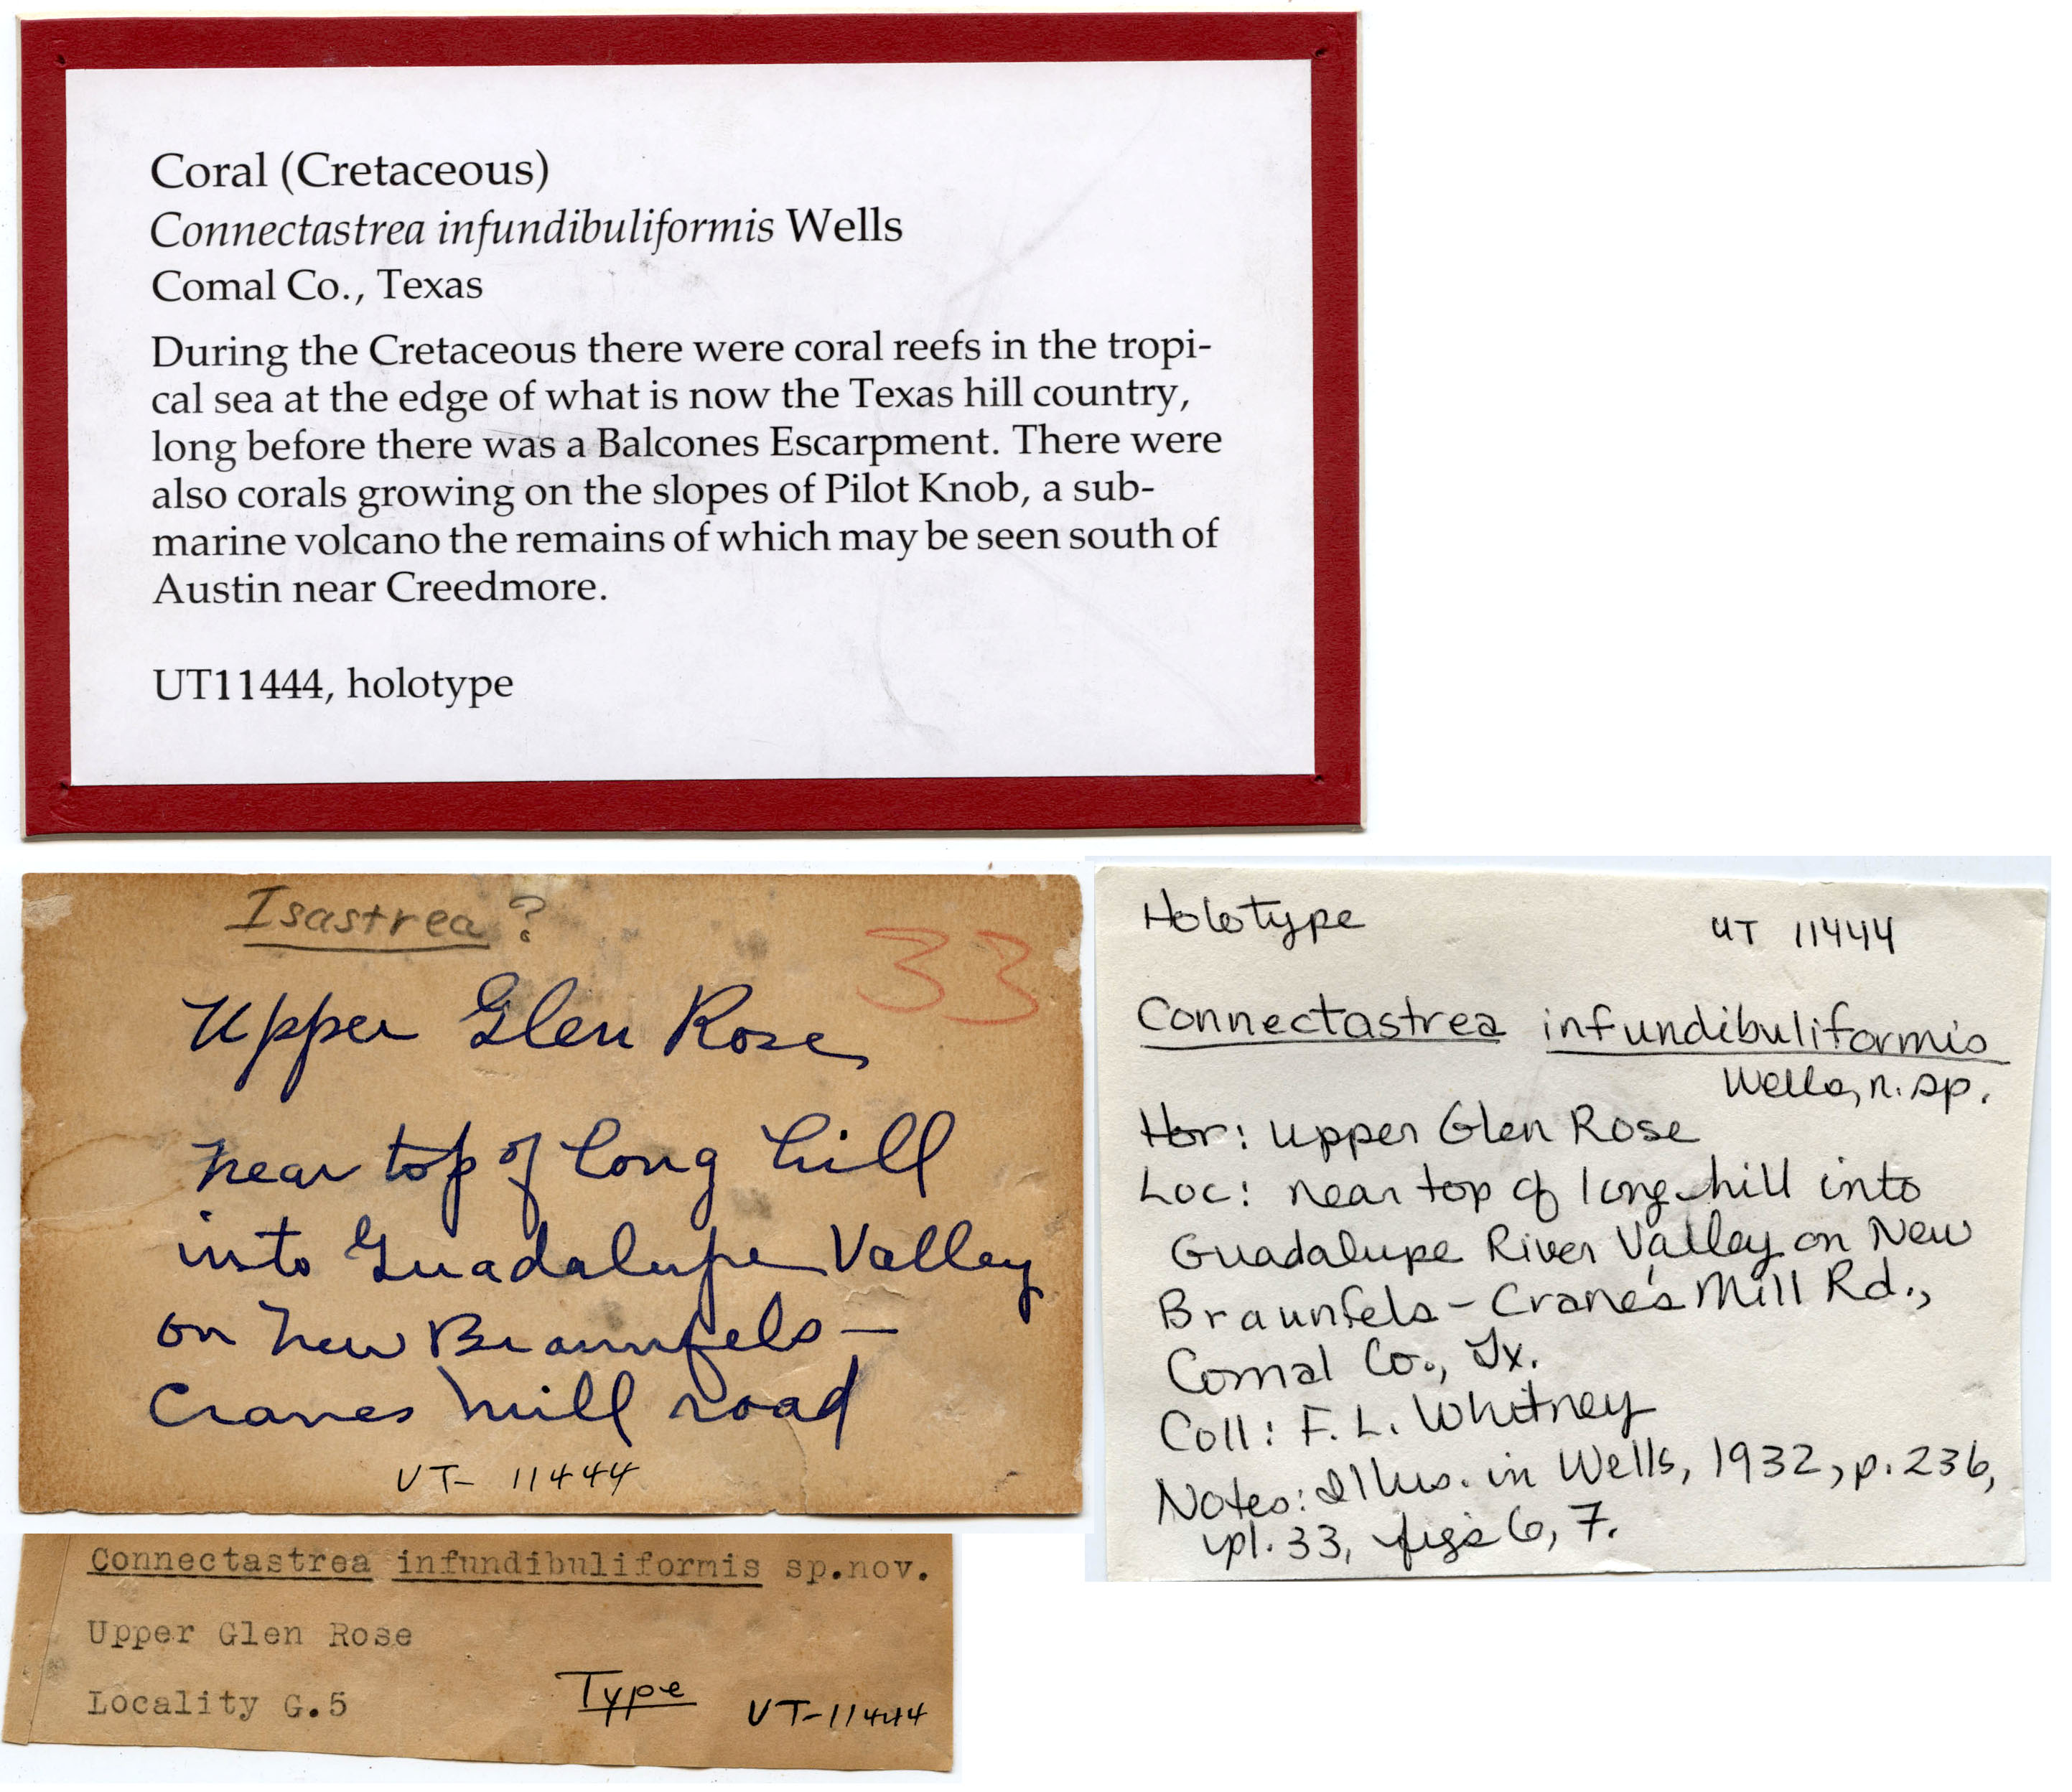 Coral (Cretaceous)
Connectastrea infundibuliformis Wells
Comal Co., Texas
During the Cretaceous there were coral reefs in the tropi-
cal sea at the edge of what is now the Texas hill country,
long before there was a Balcones Escarpment. There were
also corals growing on the slopes of Pilot Knob, a sub-
marine volcano the remains of which may be seen south of
Austin near Creedmore.
UT11444, holotype
Isastrea?
33
Upper Glen Rose
near top of long hill
into Guadalupe Valley
on New Braunfels –
Cranes Mill road
UT- 11444
Connectastrea infundibuliformis sp.nov.
Upper Glen Rose
Locality G.5
Type
UT-11444
Holotype
UT 11444
Connectastrea infundibuliformis
Wells, n. sp.
Hor: Upper Glen Rose
Loc: near top of long hill into
Guadalupe River Valley on New
Braunfels – Crane's Mill Rd.,
Comal Co., Tx.
Coll: F. L. Whitney
Notes: Illus. in Wells, 1932, p. 236,
pl. 33, figs 6, 7.